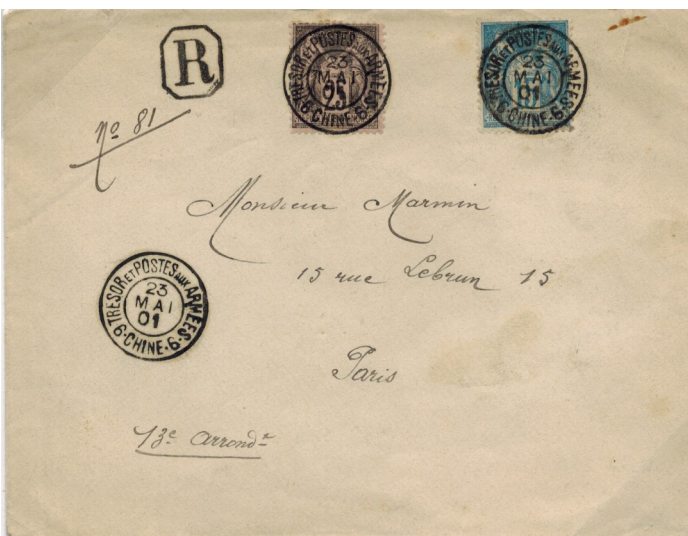 R
No 81
TRESOR ET POSTES AUX ARMEES
23
MAI
01
6 · CHINE · 6
25
TRESOR ET POSTES AUX ARMEES
23
MAI
01
6 · CHINE · 6
15
Monsieur Marmin
15 rue Lebrun 15
TRESOR ET POSTES AUX ARMEES
23
MAI
01
6 · CHINE · 6
Paris
13e arrondt